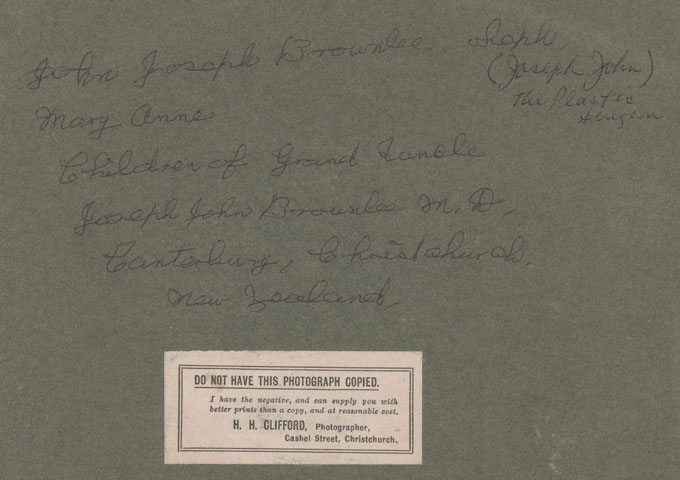 John Joseph Brownlee Seph,
(Joseph John)
The Plastic
Surgeon
Mary Anne
Children of Grand Uncle
Joseph John Brownlee M.D,
Canterbury, Christchurch.
New Zealand,
DO NOT HAVE THIS PHOTOGRAPH COPIED.
I have the negative, and can supply you with
better prints than a copy, and at reasonable cost.
H. H. CLIFFORD, Photographer,
Cashel Street, Christchurch.